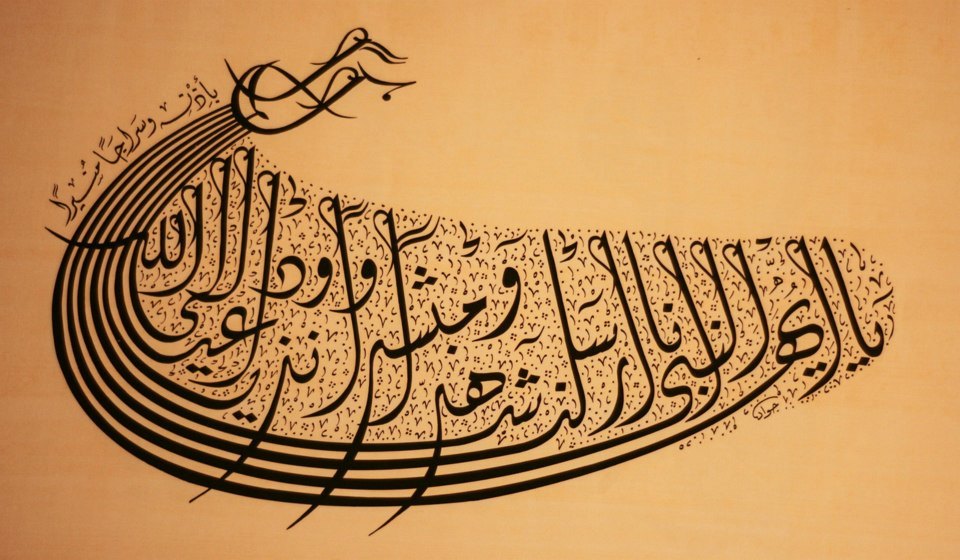 يا ايها النبى انا ارسلنك شهدا ومبشرا ونذيرا وداعيا الى الله
بإذنه وسراجًا مُنيرًا